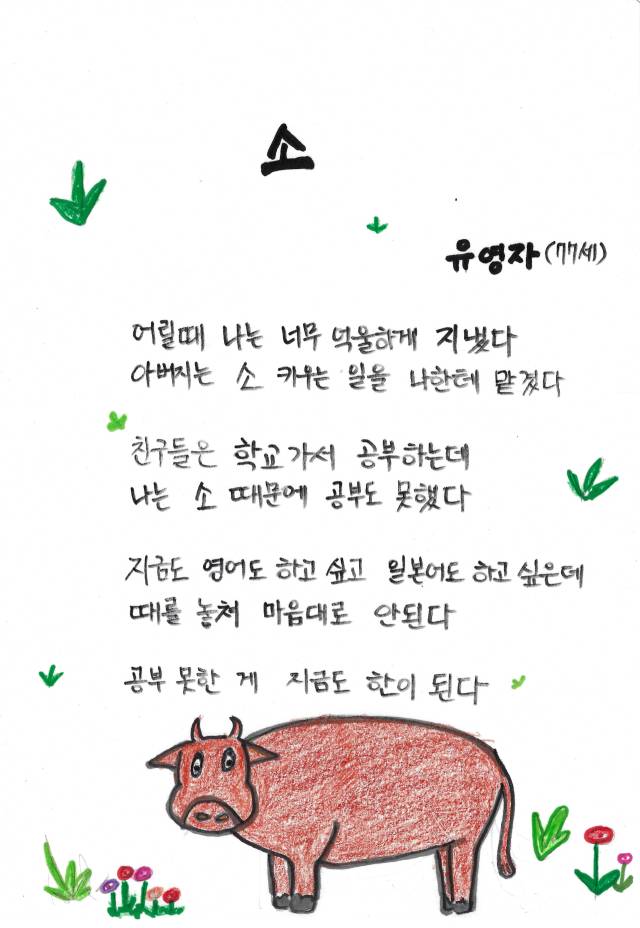 소
유영자(77세)
어릴때 나는 너무 억울하게 지냈다
아버지는 소 키우는 일을 나한테 맡겼다
친구들은 학교가서 공부하는데
나는 소 때문에 공부도 못했다
지금도 영어도 하고 싶고 일본어도 하고 싶은데
때를 놓쳐 마음대로 안된다
공부 못한 게 지금도 한이 된다